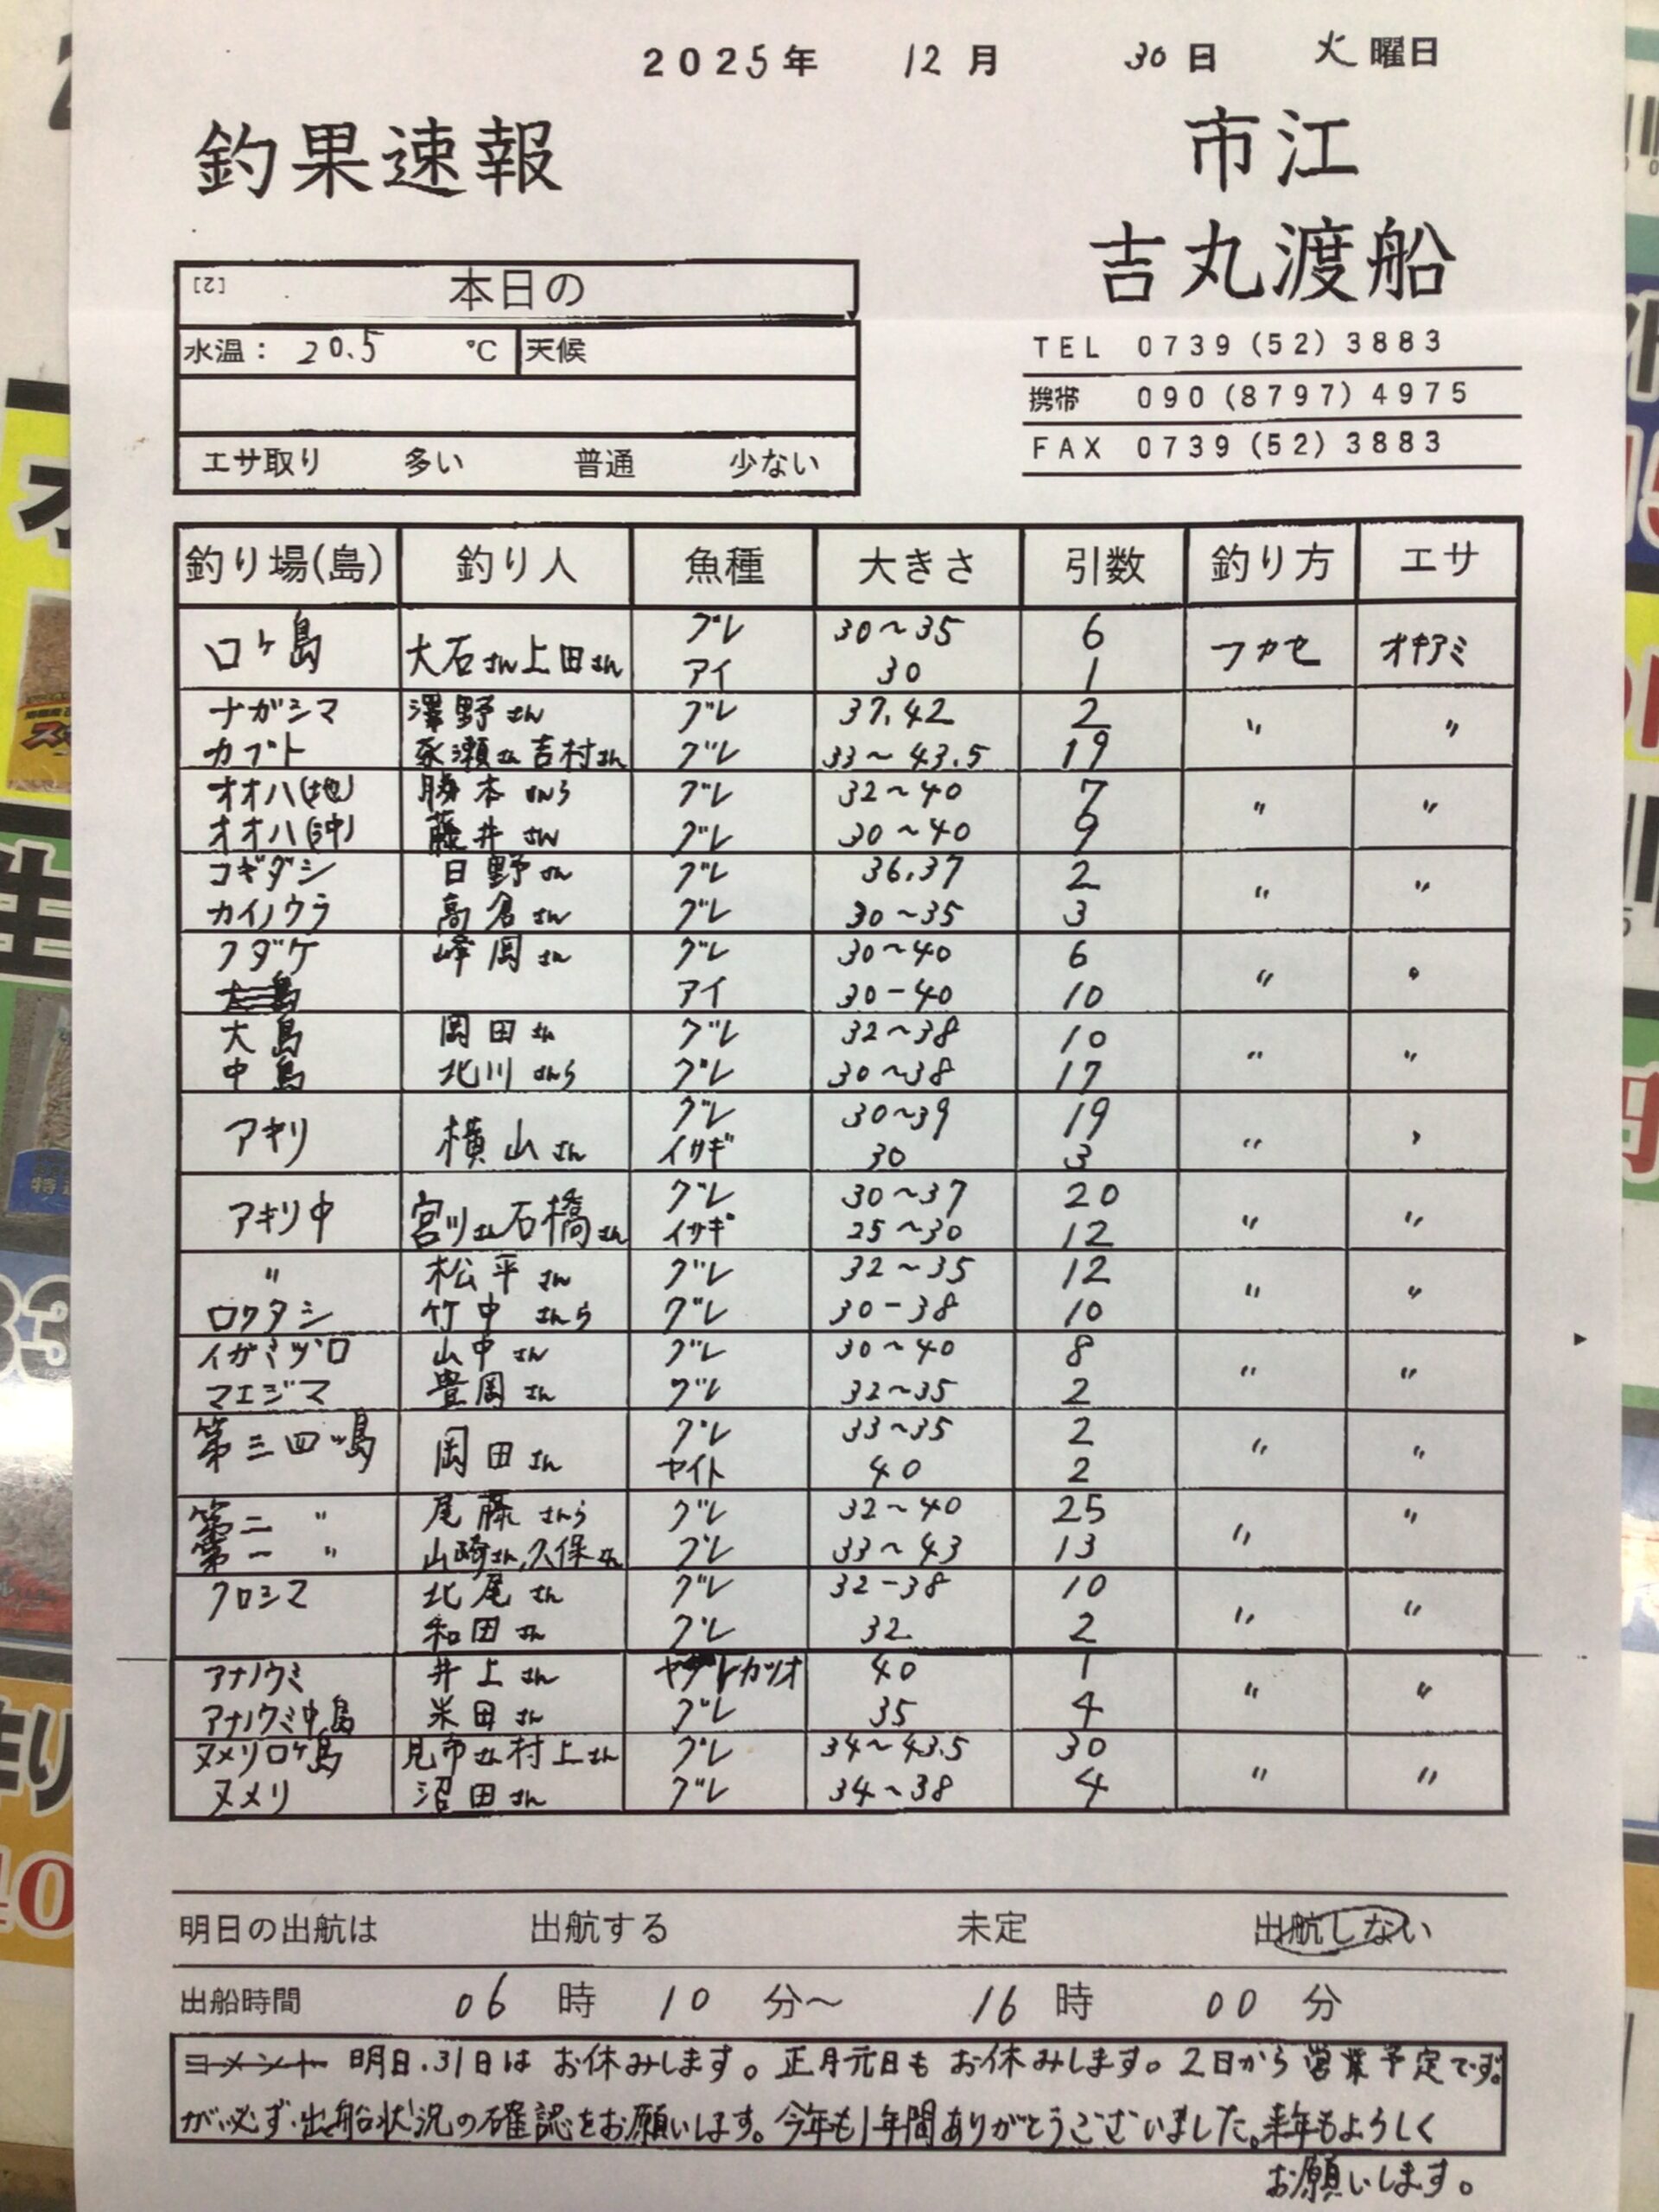 2025年 12月 30日 火曜日
釣果速報
市江
吉丸渡船
[2] 本日の
水温： 20.5 ℃ 天候
エサ取り 多い 普通 少ない
TEL 0739(52)3883
携帯 090(8797)4975
FAX 0739(52)3883
釣り場(島) 釣り人 魚種 大きさ 引数 釣り方 エサ
口ヶ島 大石さん上田さん グレ 30～35 6 フカセ オキアミ
アイ 30 1
ナガシマ 澤野さん グレ 37.42 2 〃 〃
カブト 永瀬さん吉村さん グレ 33～43.5 19
オオハ(地) 勝本さんら グレ 32～40 7 〃 〃
オオハ(沖) 藤井さん グレ 30～40 9
コギダシ 日野さん グレ 36.37 2 〃 〃
カイノウラ 高倉さん グレ 30～35 3
フダケ 峰岡さん グレ 30～40 6 〃 〃
アイ 30-40 10
大島 岡田さん グレ 32～38 10 〃 〃
中島 北川さんら グレ 30～38 17
アキリ 横山さん グレ 30～39 19 〃 〃
イサギ 30 3
アキリ中 宮川さん石橋さん グレ 30～37 20 〃 〃
イサギ 25～30 12
〃 松平さん グレ 32～35 12 〃 〃
ロクタシ 竹中さんら グレ 30-38 10
イガミヅロ 山中さん グレ 30～40 8 〃 〃
マエジマ 豊岡さん グレ 32～35 2
第三四ツ島 岡田さん グレ 33～35 2 〃 〃
ヤイト 40 2
第二 〃 尾藤さんら グレ 32～40 25 〃 〃
第一 〃 山崎さん,久保さん グレ 33～43 13
クロシマ 北尾さん グレ 32-38 10 〃 〃
和田さん グレ 32 2
アナノウミ 井上さん カツオ 40 1 〃 〃
アナノウミ中島 米田さん グレ 35 4
ヌメリ口ヶ島 見市さん村上さん グレ 34～43.5 30 〃 〃
ヌメリ 沼田さん グレ 34～38 4
明日の出航は 出航する 未定 出航しない
出船時間 06時 10分～ 16時 00分
コメント 明日.31日は お休みします。正月元日も お休みします。2日から営業予定です。
が必ず出船状況の確認をお願いします。今年も1年間ありがとうございました。来年もよろしく
お願いします。